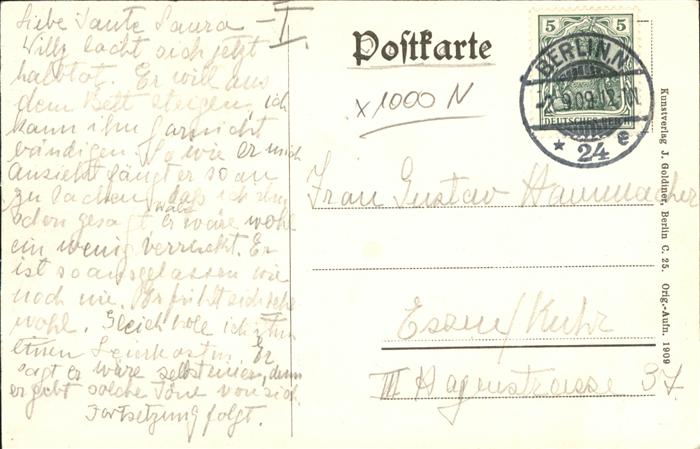 Liebe Tante Laura – I.
Willy lacht sich jetzt
halbtot. Er will aus
dem Bett steigen, ich
kann ihn garnicht
bändigen. So wie er mich
ansieht fängt er so an
zu lachen, daß ich ihm
schon gesagt, er wäre wohl
ein wenig verrückt. Er
ist so ausgelassen wie
noch nie. Er fühlt sich sehr
wohl. Gleich hole ich ihm
einen Leierkasten. Er
sagt er wäre selbst einer, denn
er gebt solche Töne von sich.
Fortsetzung folgt.
Postkarte
x 1000 N
5 5
DEUTSCHES REICH
BERLIN, N.
9.09.12
* 24 e
Frau Gustav Hammacher
Essen/Ruhr
III Hagenstrasse 37.
Kunstverlag J. Goldiner, Berlin C. 25. Orig.-Aufn. 1909